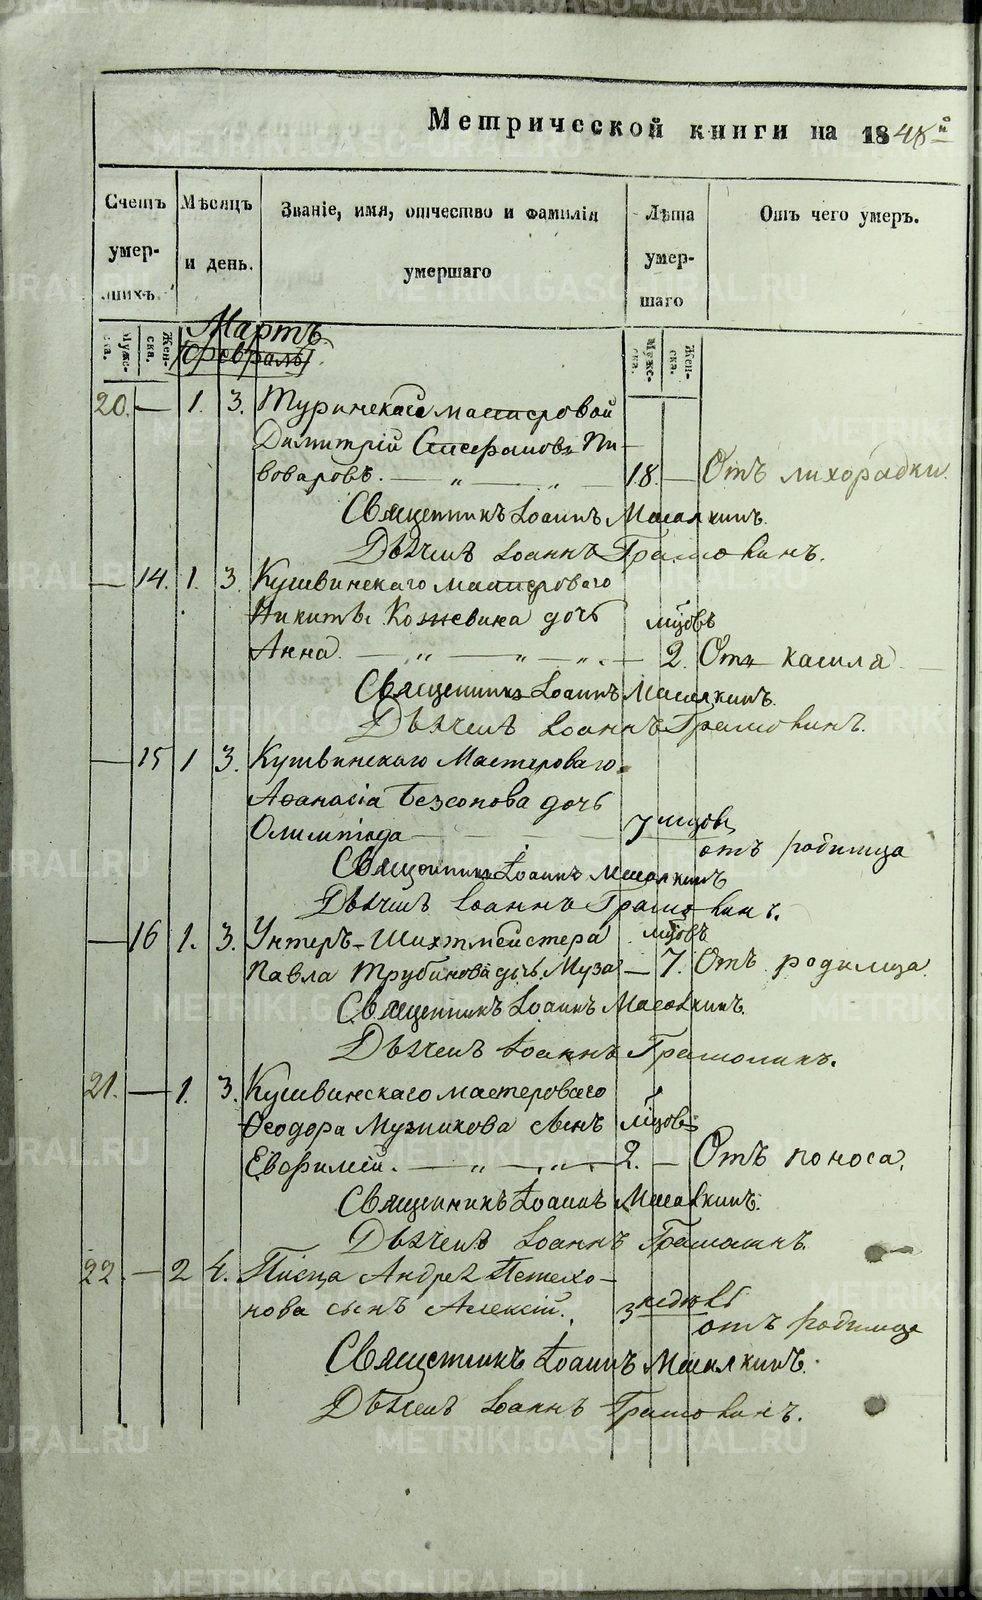 Метрической книги на 1848й
Счетъ умер-шихъ.
Мѣсяцъ и день.
Званіе, имя, отчество и фамилія умершаго
Лѣта умер-шаго
Отъ чего умеръ.
Муже-ска.
Жен-ска.
Мартъ.
Февраль
Муже-ска.
Жен-ска.
20. — 1. 3. Туринскаго мастеровой
Димитрій Стефановъ Пи-
воваровъ. — 18. — Отъ лихорадки.
Священникъ Іоаннъ
Дьячекъ Іоаннъ
— 14. 1. 3. Кушвинскаго мастероваго
Никиты Кожевина дочь мцовъ
Анна. — 2. Отъ кашля
Священникъ Іоаннъ
Дьячекъ Іоаннъ
— 15 1 3. Кушвинскаго Мастероваго
Аѳанасія Безсонова дочь
Олимпіада — 7 мцовъ
отъ родимца
Священникъ Іоаннъ
Дьячекъ Іоаннъ
— 16 1. 3. Унтеръ-Шихтмейстера мцовъ
Павла Трубинова дочь Муза — 7. Отъ родимца.
Священникъ Іоаннъ
Дьячекъ Іоаннъ
21. — 1. 3. Кушвинскаго мастероваго
Ѳеодора Музникова сынъ мцовъ
Евѳимій. — 2. — Отъ поноса.
Священникъ Іоаннъ
Дьячекъ Іоаннъ
22. — 2 4. Писца Андрея
нова сынъ Алексій. 3 недѣль
отъ родимца
Священникъ Іоаннъ
Дьячекъ Іоаннъ
METRIKI.GASO-URAL.RU